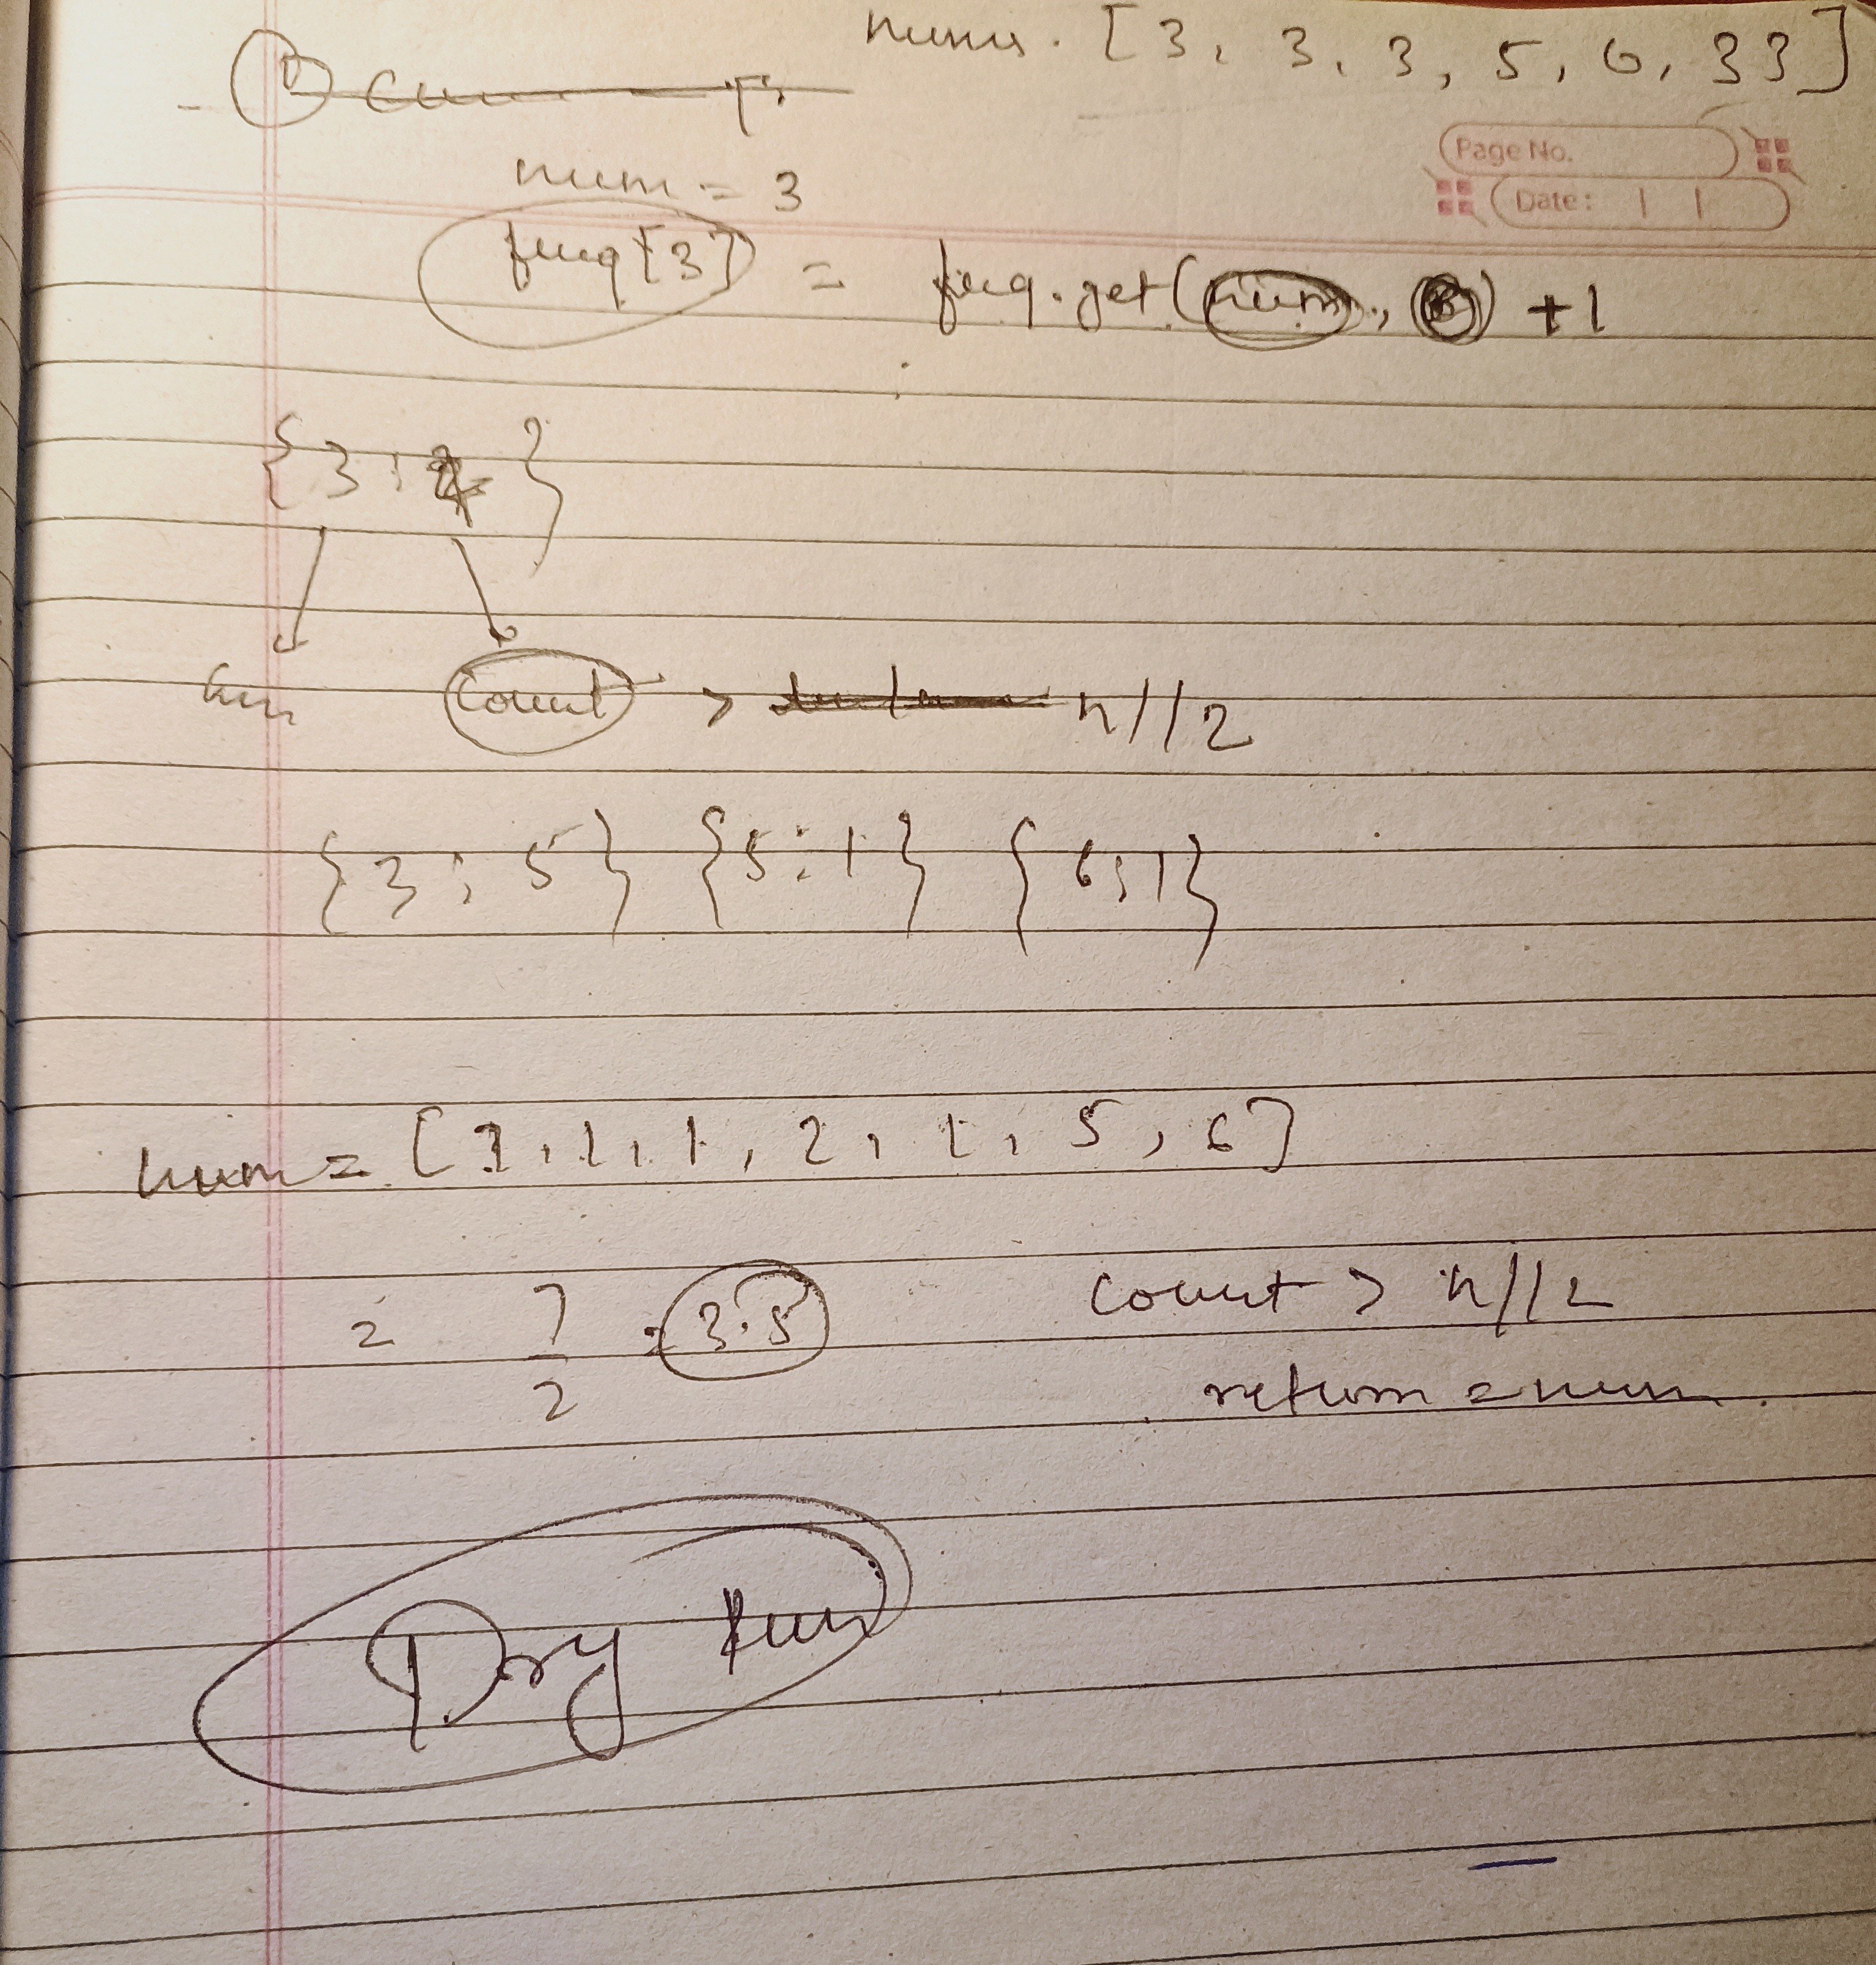 nums. [3, 3, 3, 5, 6, 33]
Page No.
Date:
num = 3
freq[3] = freq.get(num, ) +1
{3: }
num count > n//2
{3: 5} {5:1} {6:1}
num = [1,1,1,2,1,5,6]
= 7/2 = 3.5 count > n//2
return = num
Dry Run